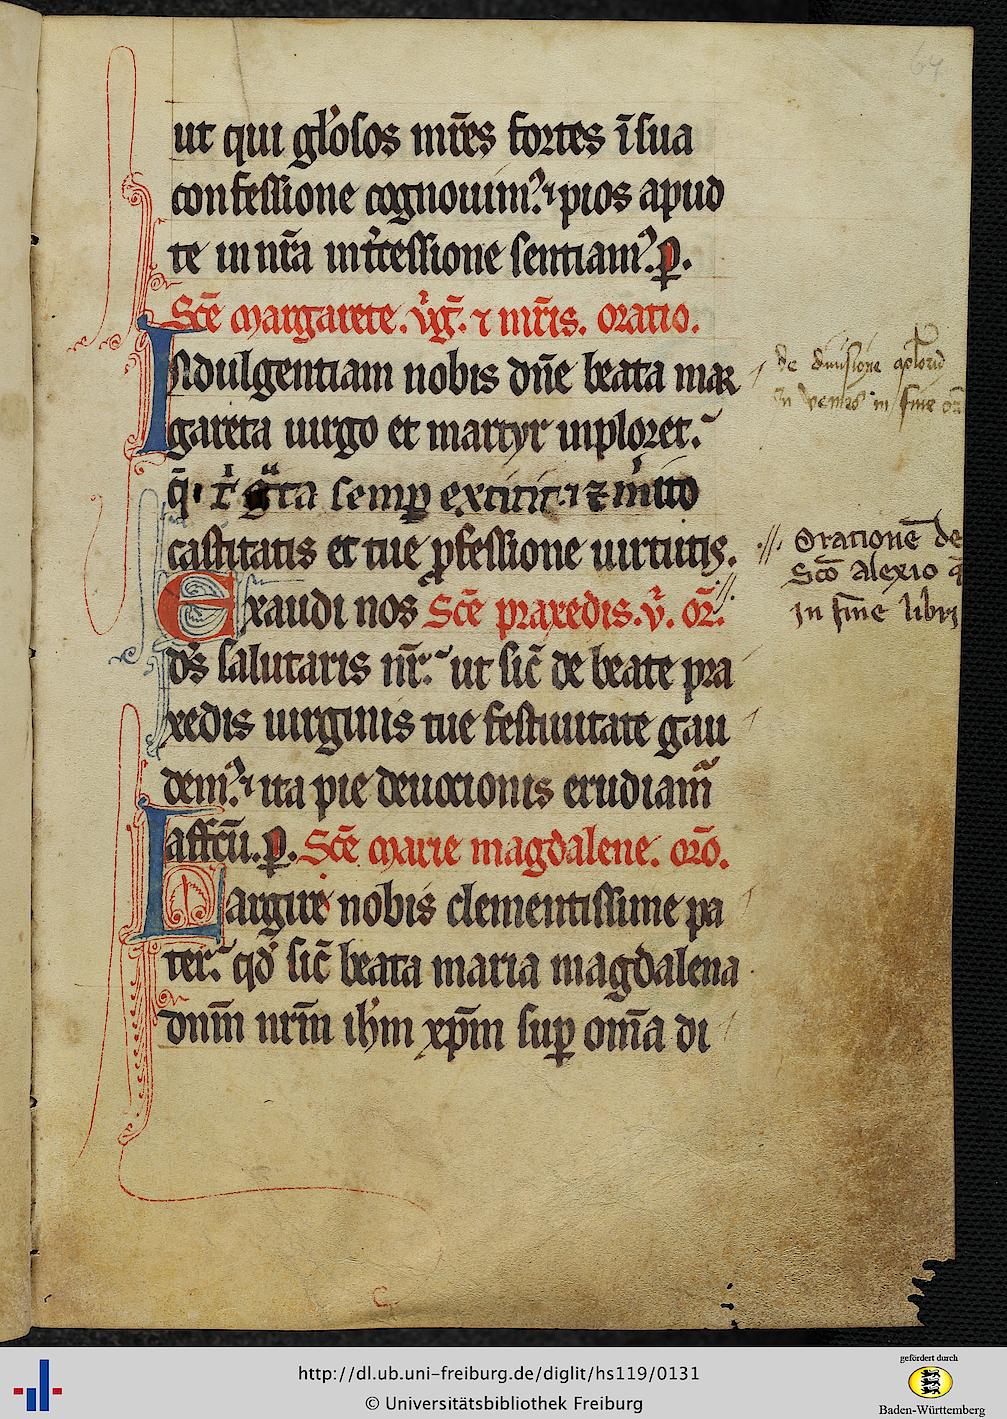 64
ut qui gl'osos mr̄es fortes ī sua
confessione cognouim9. ⁊ pios apud
te in nr̄a int'cessione sentiam9. p̲.
Scē margarete. v'ḡ. ⁊ mr̄is. oratio.
Indulgentiam nobis dn̄e beata mar
gareta uirgo et martyr inploret.
q̄. t' gͣta semp̲ extitit. ⁊ m'ito
castitatis et tue ꝓfessione uirtutis.
Exaudi nos Scē praxedis. v'. or̄.
ds̄ salutaris nr̄. ut sic̄ de beate pra
xedis uirginis tue festiuitate gau
dem9. ⁊ ita pie deuocionis erudiam̄
affc̄ū. p̲. Scē marie magdalene. orō.
Largire nobis clementissime pa
ter. qd̄ sic̄ beata maria magdalena
dnm̄ nrm̄ ih'm xp̄m sup̲ om̄a di
de diuisione apl'orū
in fine
Orationē de
Scō alexio q̄
in fine libri
http://dl.ub.uni-freiburg.de/diglit/hs119/0131
© Universitätsbibliothek Freiburg
gefördert durch
Baden-Württemberg